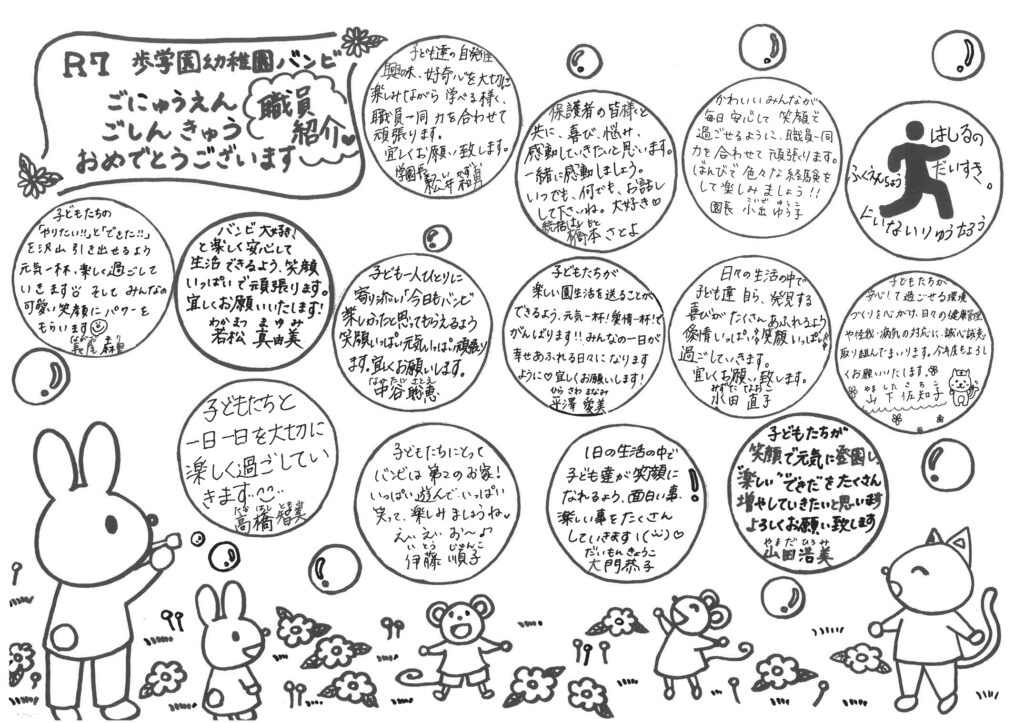 R7 歩学園幼稚園バンビ
ごにゅうえん
ごしん きゅう
おめでとうございます
職員
紹介
子ども達の自発性
興味、好奇心を大切に
楽しみながら 学べる様に、
職員一同 力を合わせて
頑張ります。
宜しくお願い致します。
学園長 松井 和男
保護者の皆様と
共に、喜び、悩み、
感動していきたいと思います。
一緒に感動しましょう。
いつでも、何でも、お話し
して下さいね。大好き♡
統括 橋本 さとよ
かわいいみんなが
毎日 安心して 笑顔で
過ごせるように、職員一同
力を合わせて 頑張ります。
ばんびで 色々な経験を
して 楽しみましょう!!
園長 小出 ゆう子
はしるの
だいすき。
ふくえんちょう
にいないりゅうたろう
子どもたちの
「やりたい!!」と「できた!!」
を沢山 引き出せるよう
元気一杯、楽しく過ごして
いきます。 そして みんなの
可愛い笑顔に パワーを
もらいます
長尾 麻里
バンビ 大好き!
と楽しく安心して
生活できるよう、笑顔
いっぱいで頑張ります。
宜しくお願いいたします!
わかまつ まゆみ
若松 真由美
子ども一人ひとりに
寄りそい「今日もバンビ
楽しかった」と思ってもらえるよう
笑顔いっぱい元気いっぱい頑張り
ます。宜しくお願いします。
なかたに さとえ
中谷 聡恵
子どもたちが
楽しい園生活を送ることが
できるよう、元気一杯!愛情一杯!で
がんばります!!みんなの一日が
幸せあふれる日々になります
ように♡ 宜しくお願いします!
からさわ まなみ
平澤 愛美
日々の生活の中で
子ども達 自ら、発見する
喜びが たくさん あふれるよう
愛情いっぱい 笑顔 いっぱいで
過ごしていきます。
宜しくお願い致します。
みずた なおこ
水田 直子
子どもたちが
安心して過ごせる環境
づくりを心がけ、日々の健康管理
や怪我・病気の対応に誠心誠意
取り組んでまいります。今年度もよろし
くお願いいたします。
やました さちこ
山下 佐知子
子どもたちと
一日一日を大切に
楽しく過ごしてい
きます
たかはし ともみ
高橋 智美
子どもたちにとって
バンビは第2のお家!
いっぱい遊んで、いっぱい
笑って、楽しみましょうね♥
えい えい お〜♪
いとう じゅんこ
伊藤 順子
1日の生活の中で
子ども達が 笑顔に
なれるよう、面白い事、
楽しい事をたくさん
していきます!(¨)♡
だいもん きょうこ
大門 恭子
子どもたちが
笑顔で元気に登園し、
"楽しい""できた"をたくさん
増やしていきたいと思います
よろしくお願い致します
やまだ ひろみ
山田 浩美